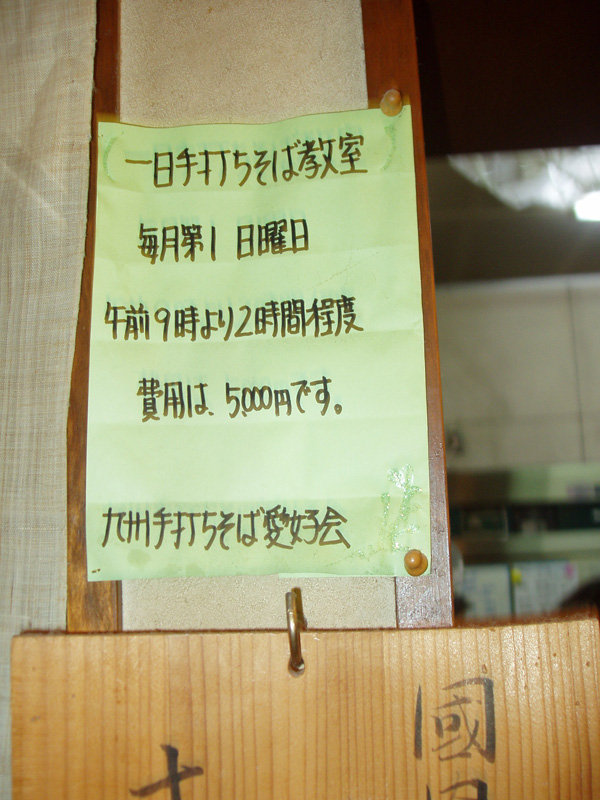 一日手打ちそば教室
毎月第1 日曜日
午前9時より2時間程度
費用は、5,000円です。
九州手打ちそば愛好会
國